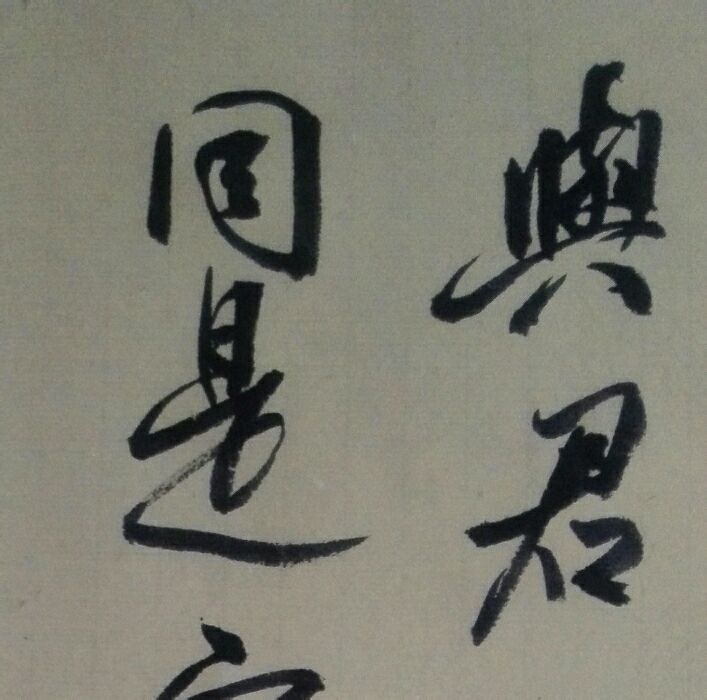 與君
同是